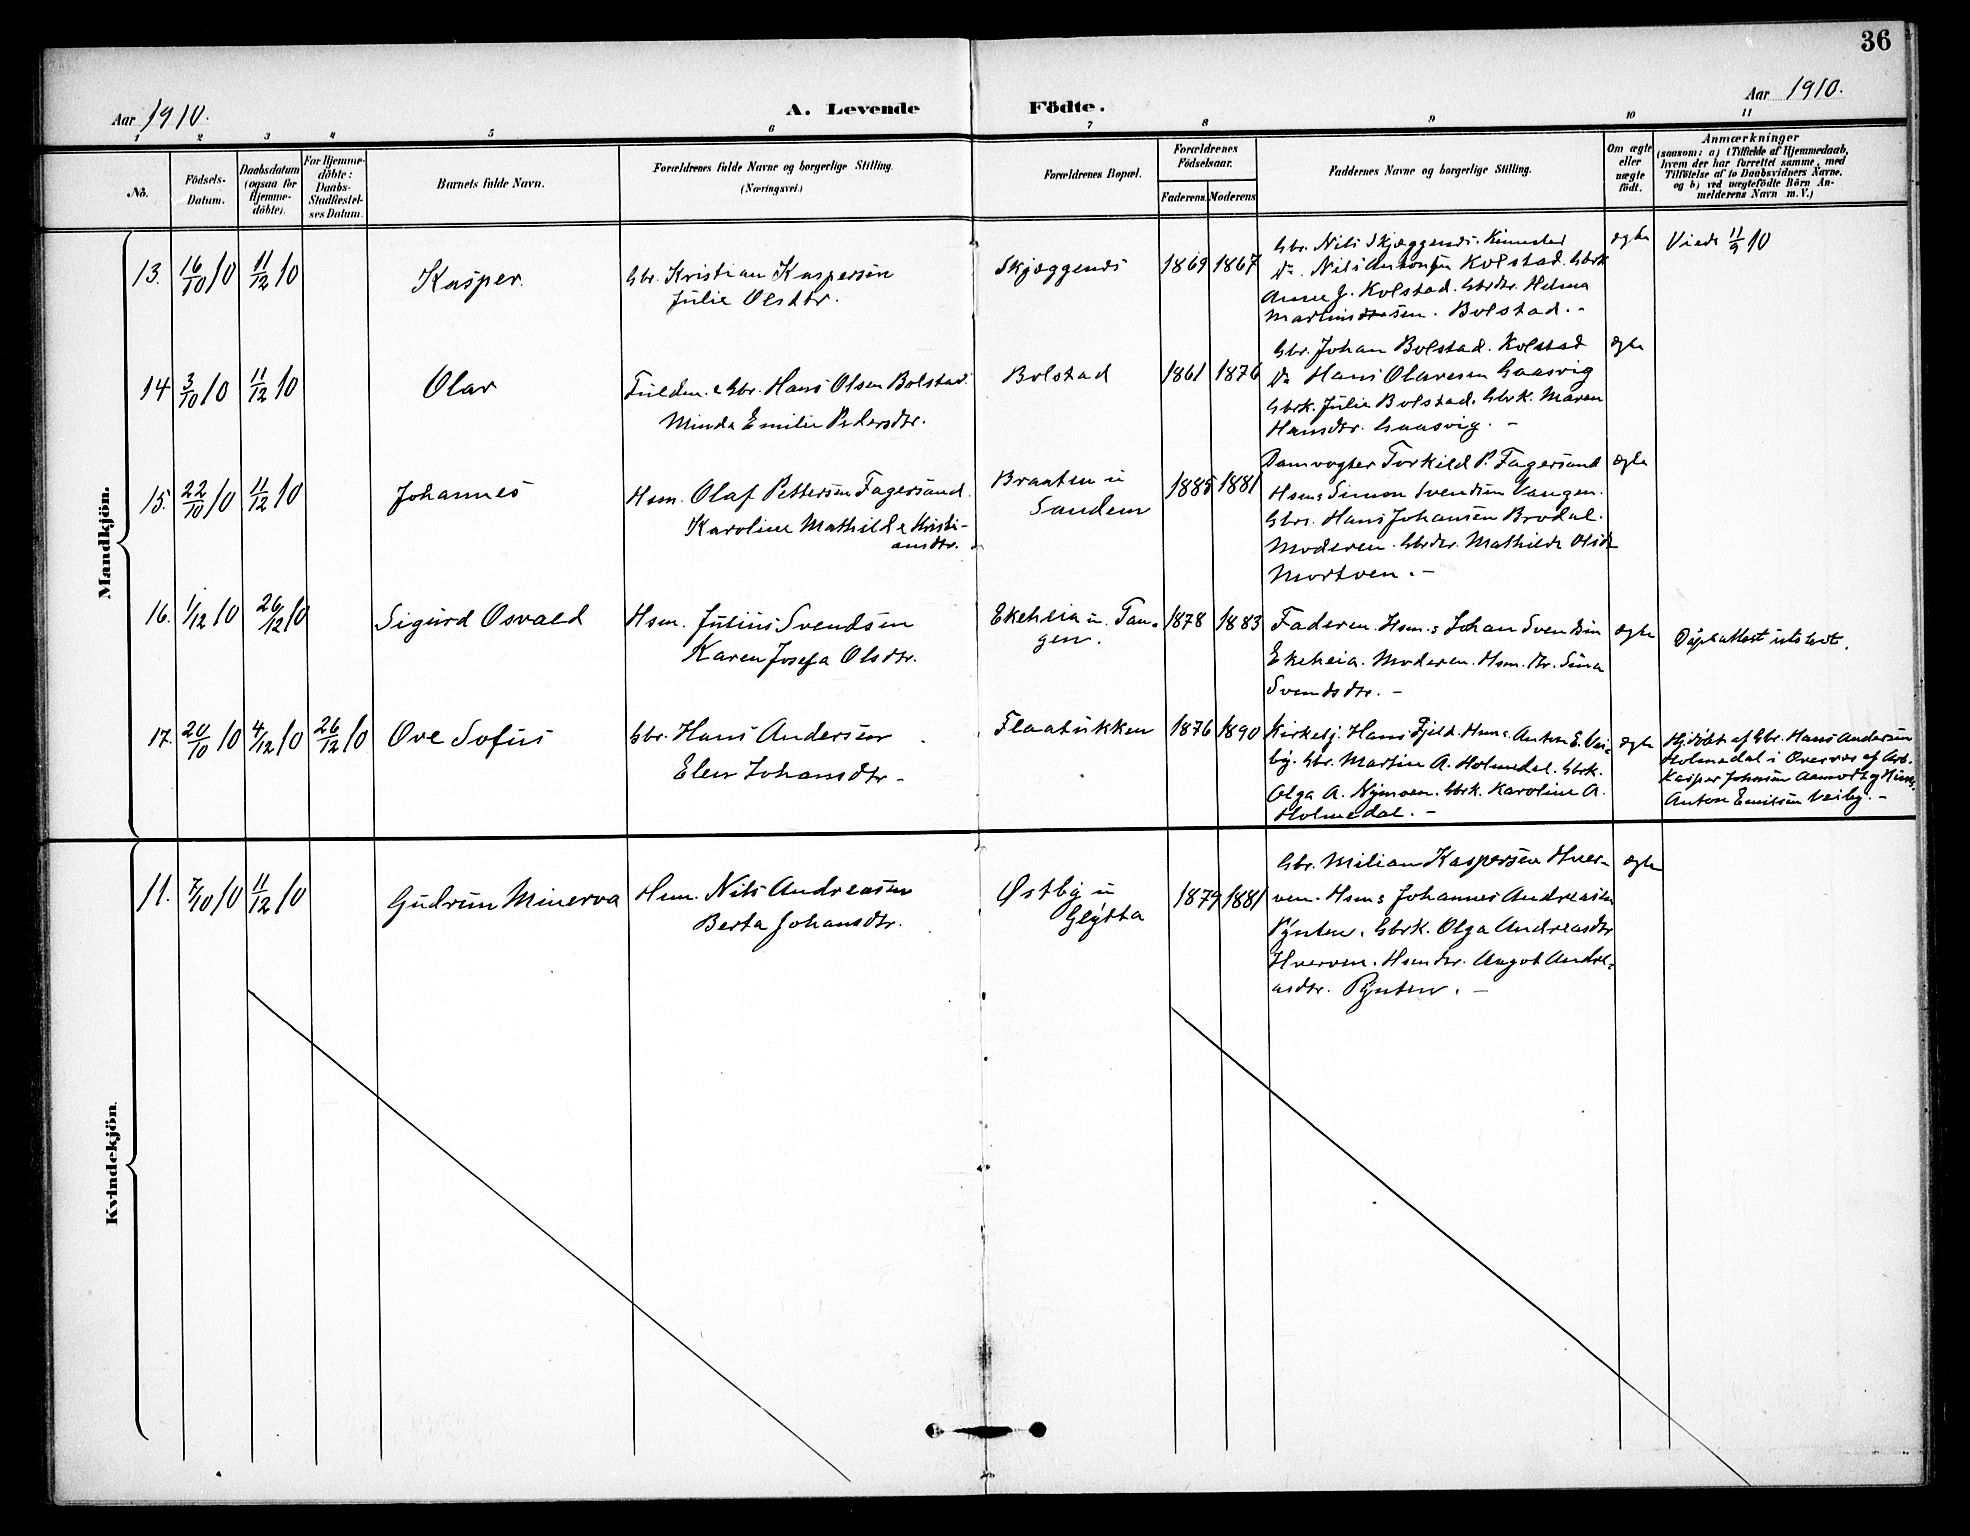 36
Aar 1910.
A. Levende Födte.
Aar 1910.
1 2 3 4 5 6 7 8 9 10 11
No.
Födsels-
Datum.
Daabsdatum
(ogsaa for
Hjemme-
döbte).
For Hjemme-
döbte:
Daabs-
Stadfæstel-
ses Datum.
Barnets fulde Navn.
Forældrenes fulde Navne og borgerlige Stilling.
(Næringsvei.)
Forældrenes Bopæl.
Forældrenes
Födselsaar.
Faderens. Moderens
Faddernes Navne og borgerlige Stilling.
Om ægte
eller
uægte
født.
Anmærkninger
(saasom: a) i Tilfælde af Hjemmedaab,
hvem der har forrettet samme, med
Tilföielse af to Daabsvidners Navne,
og b) ved uægtefödte Börn An-
melderens Navn m. V.)
Mandkjön.
13. 16/10 10 11/12 10
Kasper.
Gbr. Kristian Kaspersen
Julie Olsdtr.
Skjæggends
1869 1867
Gbr. Nils Skjæggends.
Do Nils Antonsen Kolstad. Gbrk
Anne J. Kolstad. Gbrdtr. Helma
Bolstad. -
ægte
Viede 11/9 10
14 3/10 10 11/12 10
Olav
Gbr. Hans Olsen Bolstad.
Minda Emilie Pedersdtr.
Bolstad
1861 1876
Gbr. Johan Bolstad. Kolstad
Do Hans Olavesen Gaasvig
Gbrk. Julie Bolstad. Gbrk. Maren
Hansdtr. Gaasvig. -
ægte
15. 22/10 10 11/12 10
Johannes
Hsm. Olaf Pettersen Fagersand.
Karoline Mathilde Kristi-
ansdtr.
Braaten u
Sandem
1885 1881
Damvogter Torkild P. Fagersand
Hsm. Simon Svendsen Vangen.
Gbr. Hans Johansen Brodal.
Moderen. Gbrdtr. Mathilde Olsdtr
Mortven. -
ægte
16. 1/12 10 26/12 10
Sigurd Osvald
Hsm. Julius Svendsen
Karen Josefa Olsdtr.
Ekeheia u. Tan-
gen.
1878 1883
Faderen. Hsm.s Johan Svendsen
Ekeheia. Moderen. Hsm. dtr. Sina
Svendsdtr. -
ægte
Daabsattest utstedt.
17. 20/10 10 4/12 10 26/12 10
Ove Sofus
Gbr. Hans Andersen
Elen Johansdtr -
Flaatukken
1876 1890
Kirkesj. Hans Fjeld. Hsm.s Anton E. Vei-
by. Gbr. Martin A. Holmedal. Gbrk.
Olga A. Nymoen. Gbrk. Karoline A.
Holmedal. -
ægte
Hj.döbt af Gbr. Hans Andersen
Holmedal i Overvær af Arb.
Kasper Johnsen Aamodt og Hsm.s
Anton Emilsen Veiby. -
Kvindekjön.
11. 7/10 10 11/12 10
Gudrun Minerva
Hsm. Nils Andreasen
Berta Johansdtr.
Østby u
Glötta
1879 1881
Gbr. Milian Kaspersen Hver-
ven. Hsm.s Johannes Andreasen
Pynten. Gbrk. Olga Andreasdtr
Hverven. Hsmdtr. Angot Andre-
asdtr. Pynten. -
ægte